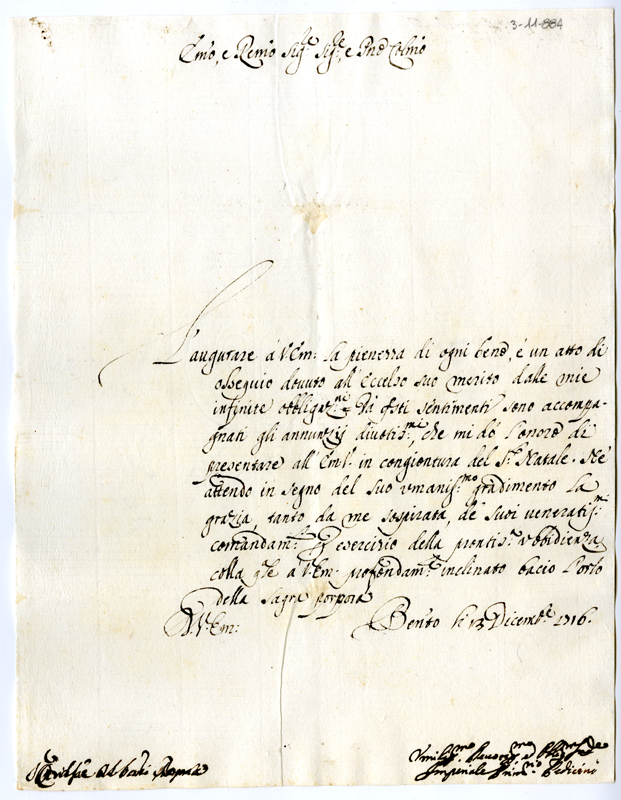 3-11-884
Emo, e Remo Sig.re Sig.re, e Pne Colmo
L'augurare á V.Em: la pienezza di ogni bene, é un atto di
ossequio dovuto all'Eccelso suo merito dalle mie
infinite obbligaz.ni e Da q.sti sentimenti sono accompa-
gnati gli annunzij divotis.mi, che mi dó l'onore di
presentare all'Em.V. in congiontura del S.to Natale. Ne
attendo in segno del suo umanis.mo gradimento la
grazia, tanto da me sospirata, de suoi veneratis.mi
comandam.ti p esercizio della prontis.a ubbidienza,
colla q.le a V.Em: profondam.te inclinato bacio l'orlo
della Sagra porpora
D.V.Em: Bento li 13 Dicemb.re 1716.
S.r Card.le Alb.ni
Umilis.mo Devotis.mo
Imperiale Pedicini